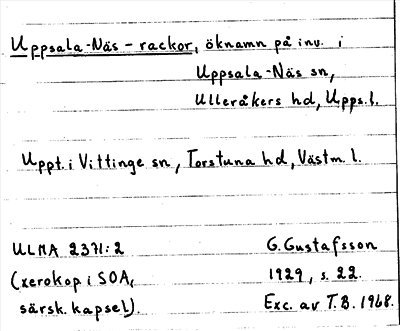 Uppsala-Näs - rackor, öknamn på inv. i
Uppsala-Näs sn,
Ulleråkers hd, Upps.l.
Uppt. i Vittinge sn, Torstuna hd, Västm.l.
ULMA 2371:2
G. Gustafsson
(xerokop i SOA,
1929, s. 22.
särsk. kapsel).
Exc. av T.B. 1968.